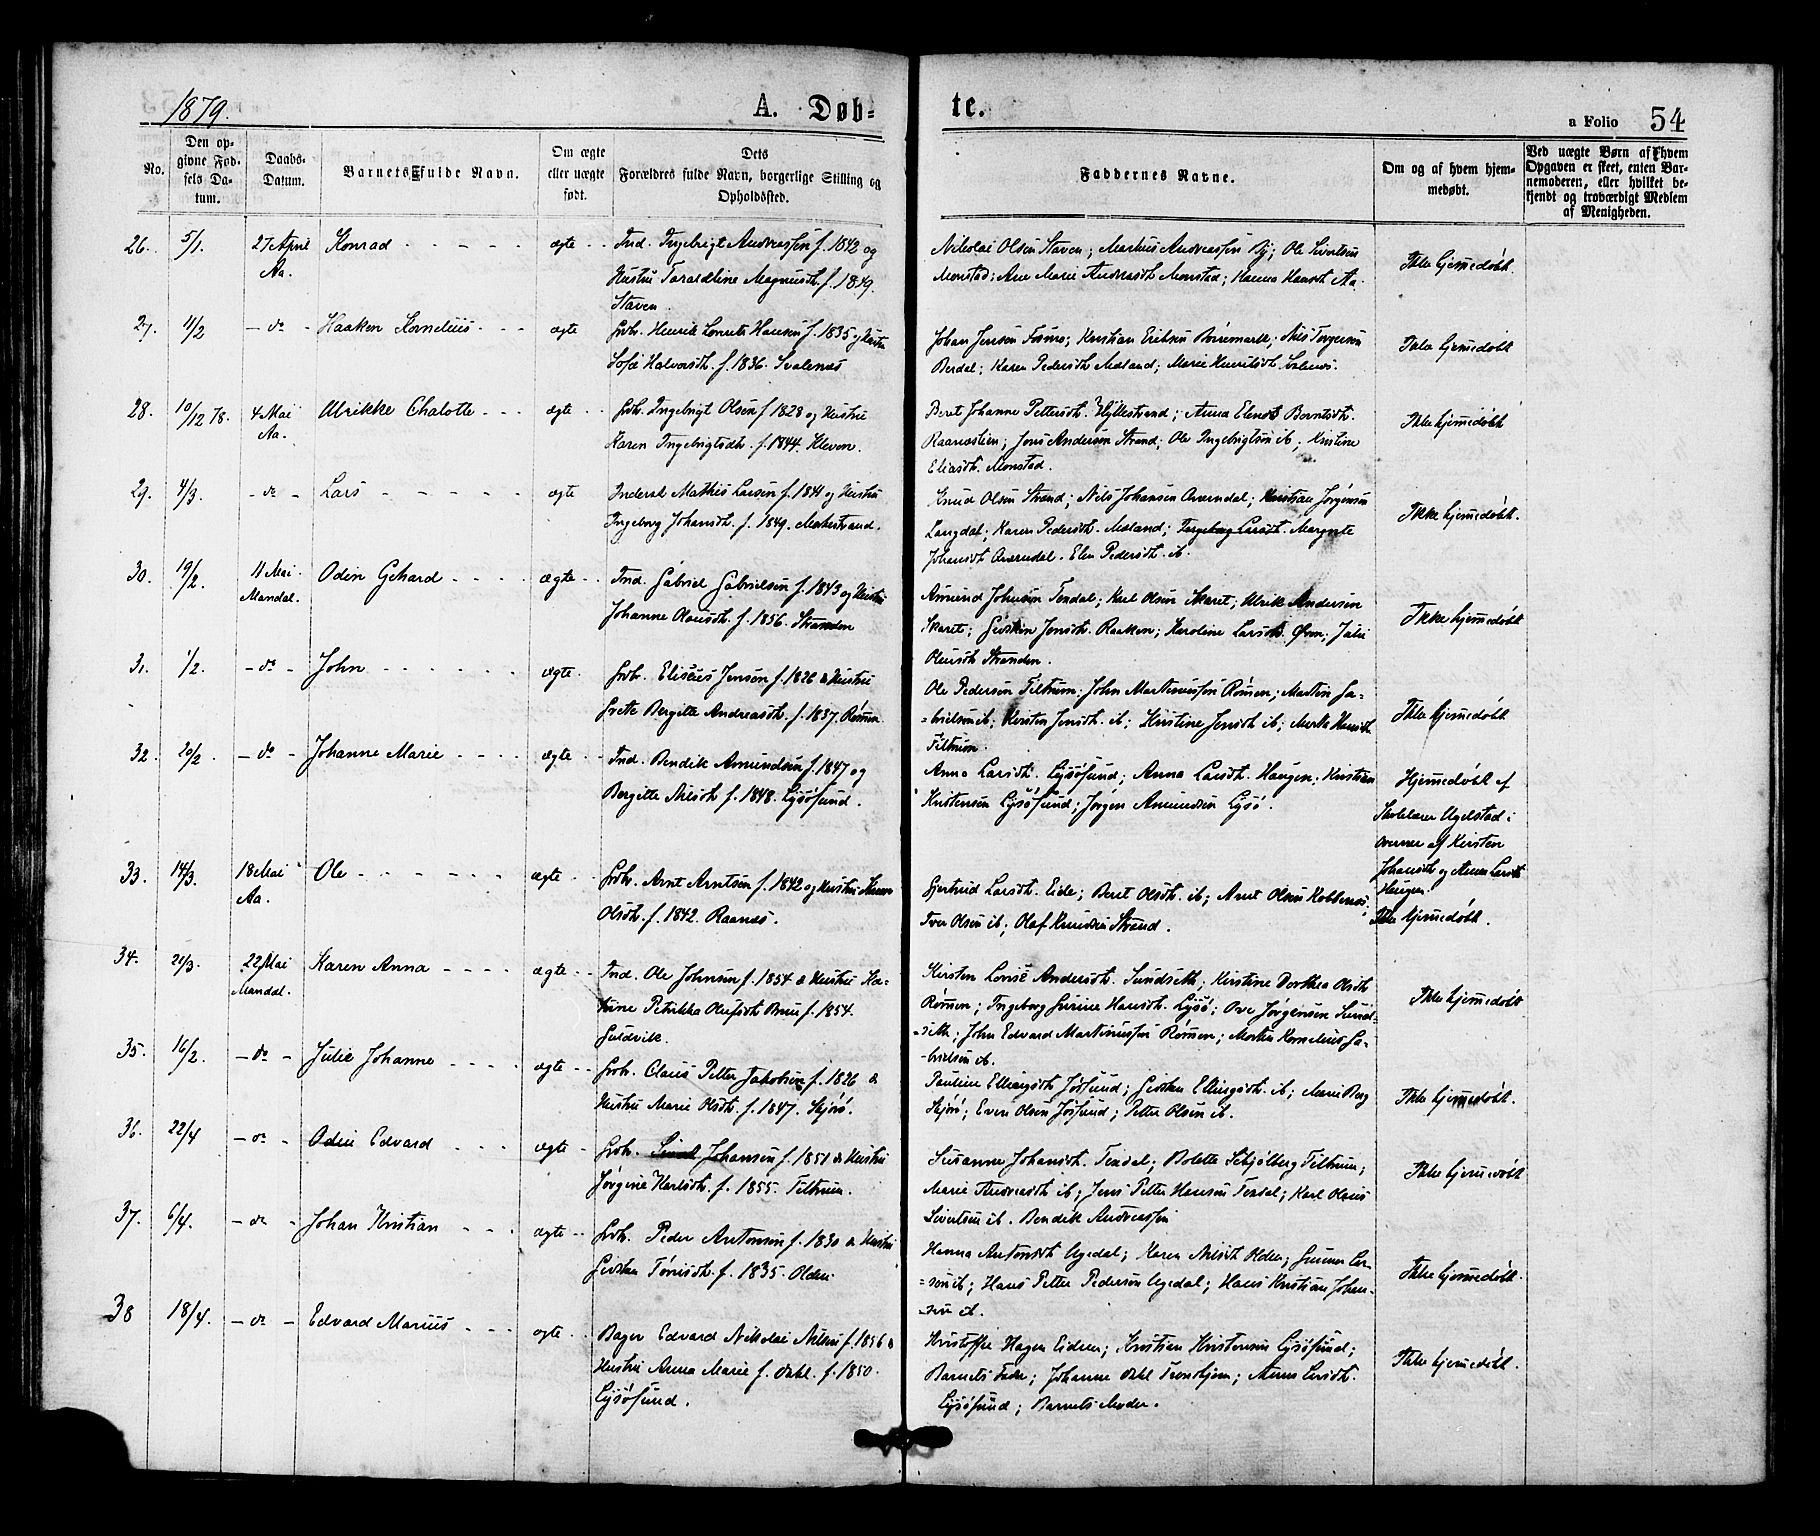 1879.
A. Døb-
te.
a Folio 54
No.
Den op-
givne Fød-
sels Da-
tum.
Daabs-
Datum.
Barnets fulde Navn.
Om ægte
eller uægte
født.
Dets
Forældres fulde Navn, borgerlige Stilling og
Opholdssted.
Faddernes Navne.
Om og af hvem hjem-
medøbt.
Ved uægte Børn af hvem
Opgaven er skeet, enten Bar-
nemoderen, eller hvilket be-
kjendt og troværdigt Medlem
af Menigheden.
26. 5/1. 27 April Aa. Konrad ægte
Ind. Ingebrigt Andreassen f. 1842 og
Hustru Taraldline Magnusdt. f. 1849.
Staven
Nikolai Olsen Staven; Markus Andreassen By; Ole Sivertsen
Monstad; Ane Marie Andreasdt. Monstad; Hanna Hansdt. Aa.
Ikke hjemmedøbt.
27. 11/2 - do - Haakon Kornelius ægte
Grdb. Henrik Hansen f. 1835 og Hustru
Sofie Halvorsdt. f. 1836. Svalenæs
Johan Jensen Fosmo; Kristian Eriksen Børremark; Nils Torgersen
Berdal; Karen Pedersdt. Meland; Marie Henriksdt.
Ikke hjemmedøbt
28. 10/12 78. 4 Mai Aa. Ulrikke Chalotte ægte
Grdb. Ingebrigt Olsen f. 1828 og Hustru
Karen Ingebrigtsdt. f. 1844. Kleven.
Beret Johanne Pettersdt. Hyllestrand; Anna Berntsdt.
Jens Andersen Strand; Ole Ingebrigtsen ib; Kristine
Eliasdt. Monstad.
Ikke hjemmedøbt
29. 4/3. - do - Lars ægte
Inderst Mathis Larsen f. 1841 og Hustru
Ingeborg Johansdt. f. 1849.
Knud Olsen Strand; Nils Johansen Averndal; Kristian Jørgensen
Langdal; Karen Pedersdt. Meland; Larsdt. Margrete
Johansdt. Averndal. Elen Pedersdt. ib.
Ikke hjemmedøbt.
30. 19/2. 11 Mai Mandal. Odin Gehard ægte
Ind. Gabriel Gabrielsen f. 1843 og Hustru
Johanne Olausdt. f. 1856. Stranden
Amund Johnsen Teksdal; Karl Olsen Skaret; Ulrik Andersen
Skaret; Jensdt. Raaken; Karoline Larsdt. Øren; Julie
Olausdt. Stranden.
Ikke hjemmedøbt
31. 1/2. - do - John ægte
Grdb. Eliseus Jensen f. 1826 & Hustru
Grete Bergitte Andreasdt. f. 1837. Rømen
Ole Pedersen Teltrum; John Martinussen Rømen; Martin Ga-
brielsen ib; Kirsten Jensdt. ib; Kirstine Jensdt. ib; Hansdt.
Teltrum.
Ikke hjemmedøbt
32. 20/2 - do - Johanne Marie ægte
Ind. Bendik Amundsen f. 1847 og
Bergitte Nilsdt. f. 1848. Lysøsund.
Anna Larsdt. Lysøsund; Anna Larsdt. Haugen. Kristian
Kristensen Lysøsund; Jørgen Amundsen Lysø.
Hjemmedøbt af
Skolelærer Ugelstad i
overvær af Kirsten
Johansdt. og Anna Larsdt.
Haugen.
33. 14/3. 18 Mai Aa. Ole ægte
Grdb. Arnt Arntsen f. 1842 og Hustru
Olsdt. f. 1842. Raanæs.
Gjertrud Larsdt. Eide; Beret Olsdt. ib; Arnt Olsen Kobbenæs;
Iver Olsen ib; Olaf Knudsen Strand.
Ikke hjemmedøbt.
34. 21/3. 22 Mai Mandal. Karen Anna ægte
Ind. Ole Johnsen f. 1854 & Hustru Ka-
trine Petrikka Olufsdt. Bruu f. 1854.
Guldvik.
Kirsten Lovise Andersdt. Sundseth; Kirstine Dorthea Olsdt.
Rømen; Ingeborg Gurine Hansdt. Lysø; Ove Jørgensen Sund-
seth; John Edvard Martinussen Rømen; Martin Kornelius Ga-
brielsen ib.
Ikke hjemmedøbt
35. 16/2. - do - Julie Johanne ægte
Grdb. Claus Petter Jakobsen f. 1826 &
Hustru Marie Olsdt. f. 1847. Skjørø.
Pauline Ellingsdt. Jøssund; Ellingsdt. ib; Marie Berg
Skjørø; Even Olsen Jøssund; Petter Olsen ib.
Ikke hjemmedøbt.
36. 22/4 - do - Odin Edvard ægte
Grdb. Johansen f. 1851 & Hustru
Jørgine Karlsdt. f. 1855. Teltrum.
Susanne Johansdt. Teksdal; Bolette Schjølberg Teltrum;
Marie Andreasdt. ib; Jens Petter Hansen Teksdal; Karl Olaus
Sivertsen ib. Bendik Andreassen
Ikke hjemmedøbt
37. 6/4. - do - Johan Kristian ægte
Grdb. Peder Antonsen f. 1830 & Hustru
Tørrisdt. f. 1835. Olden.
Hanna Antonsdt. Agedal; Karen Nilsdt. Olden; Gunner Lar-
sen ib; Hans Petter Pedersen Agedal; Hans Kristian Johan-
sen ib.
Ikke hjemmedøbt.
38 18/4. - do - Edvard Marius ægte
Bager Edvard Nikolai Nilsen f. 1856 &
Hustru Anna Marie f. Dahl. f. 1850.
Lysøsund.
Kristoffer Hagen Eidem; Kristian Kristensen Lysøsund;
Barnets Fader; Johanne Dahl Tronhjem; Larsdt.
Lysøsund; Barnets Moder.
Ikke hjemmedøbt.